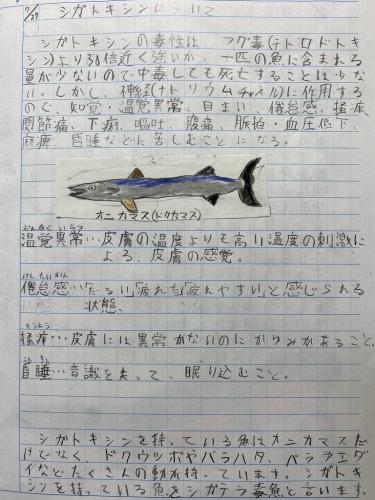 7/27 シガトキシンについて
シガトキシンの毒性は、フグ毒(テトロドトキ
シン)より30倍近く強いが、一匹の魚に含まれる
量が少ないので中毒しても死亡することは少な
い。しかし、神経(ナトリウムチャネル)に作用する
ので、知覚・温覚異常、目まい、倦怠感、掻痒、
関節痛、下痢、嘔吐、腹痛、脈拍・血圧低下、
麻痺、昏睡などに苦しむことになる。
オニカマス(ドクカマス)
温覚異常…皮膚の温度よりも高い温度の刺激に
よる、皮膚の感覚。
けんたいかん
倦怠感…「だるい」「疲れた」「疲れやすい」と感じられる
状態。
そうよう
掻痒…皮膚には異常がないのにかゆみがあること。
昏睡…意識を失って、眠り込むこと。
シガトキシンを持っている魚はオニカマスだ
けでなく、ドクウツボやバラハタ、バラフエダ
イなどたくさんの動が持っています。シガトキ
シンを持っている魚をシガテラ毒魚と言います。